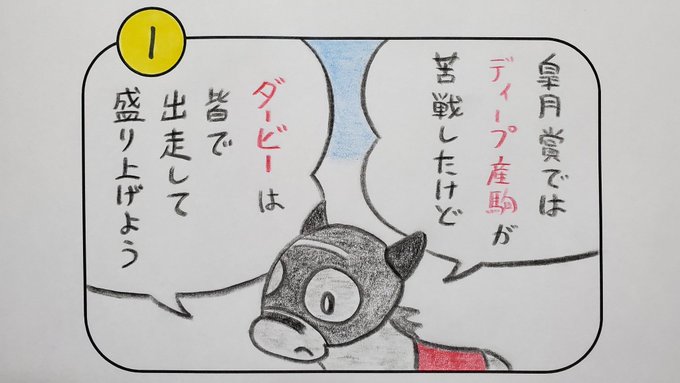 1
皐月賞では
ディープ産駒が
苦戦したけど
ダービーは
皆で
出走して
盛り上げよう